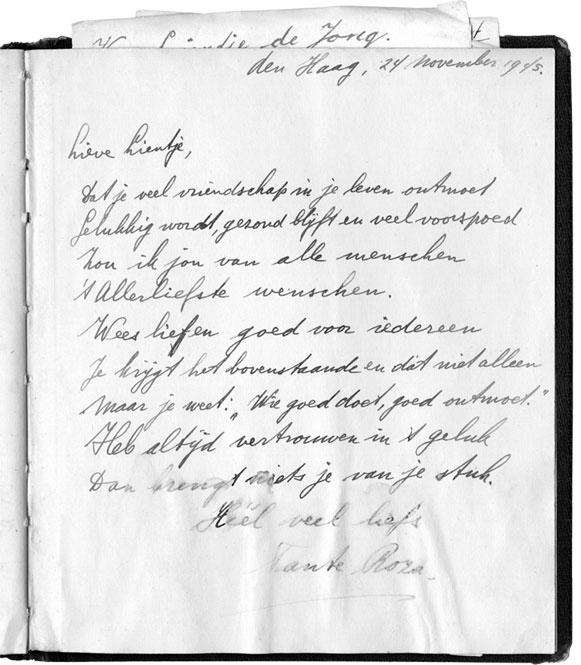 de Jong.
den Haag, 24 November 1945.
Lieve Lientje,
Dat je veel vriendschap in je leven ontmoet
Gelukkig wordt, gezond blijft en veel voorspoed
Zou ik jou van alle menschen
't Allerliefste wenschen.
Wees lief en goed voor iedereen
Je krijgt het bovenstaande en dat niet alleen
Maar je weet: „Wie goed doet, goed ontmoet."
Heb altijd vertrouwen in 't geluk
Dan brengt niets je van je stuk.
Héél veel liefs
Tante Roza.